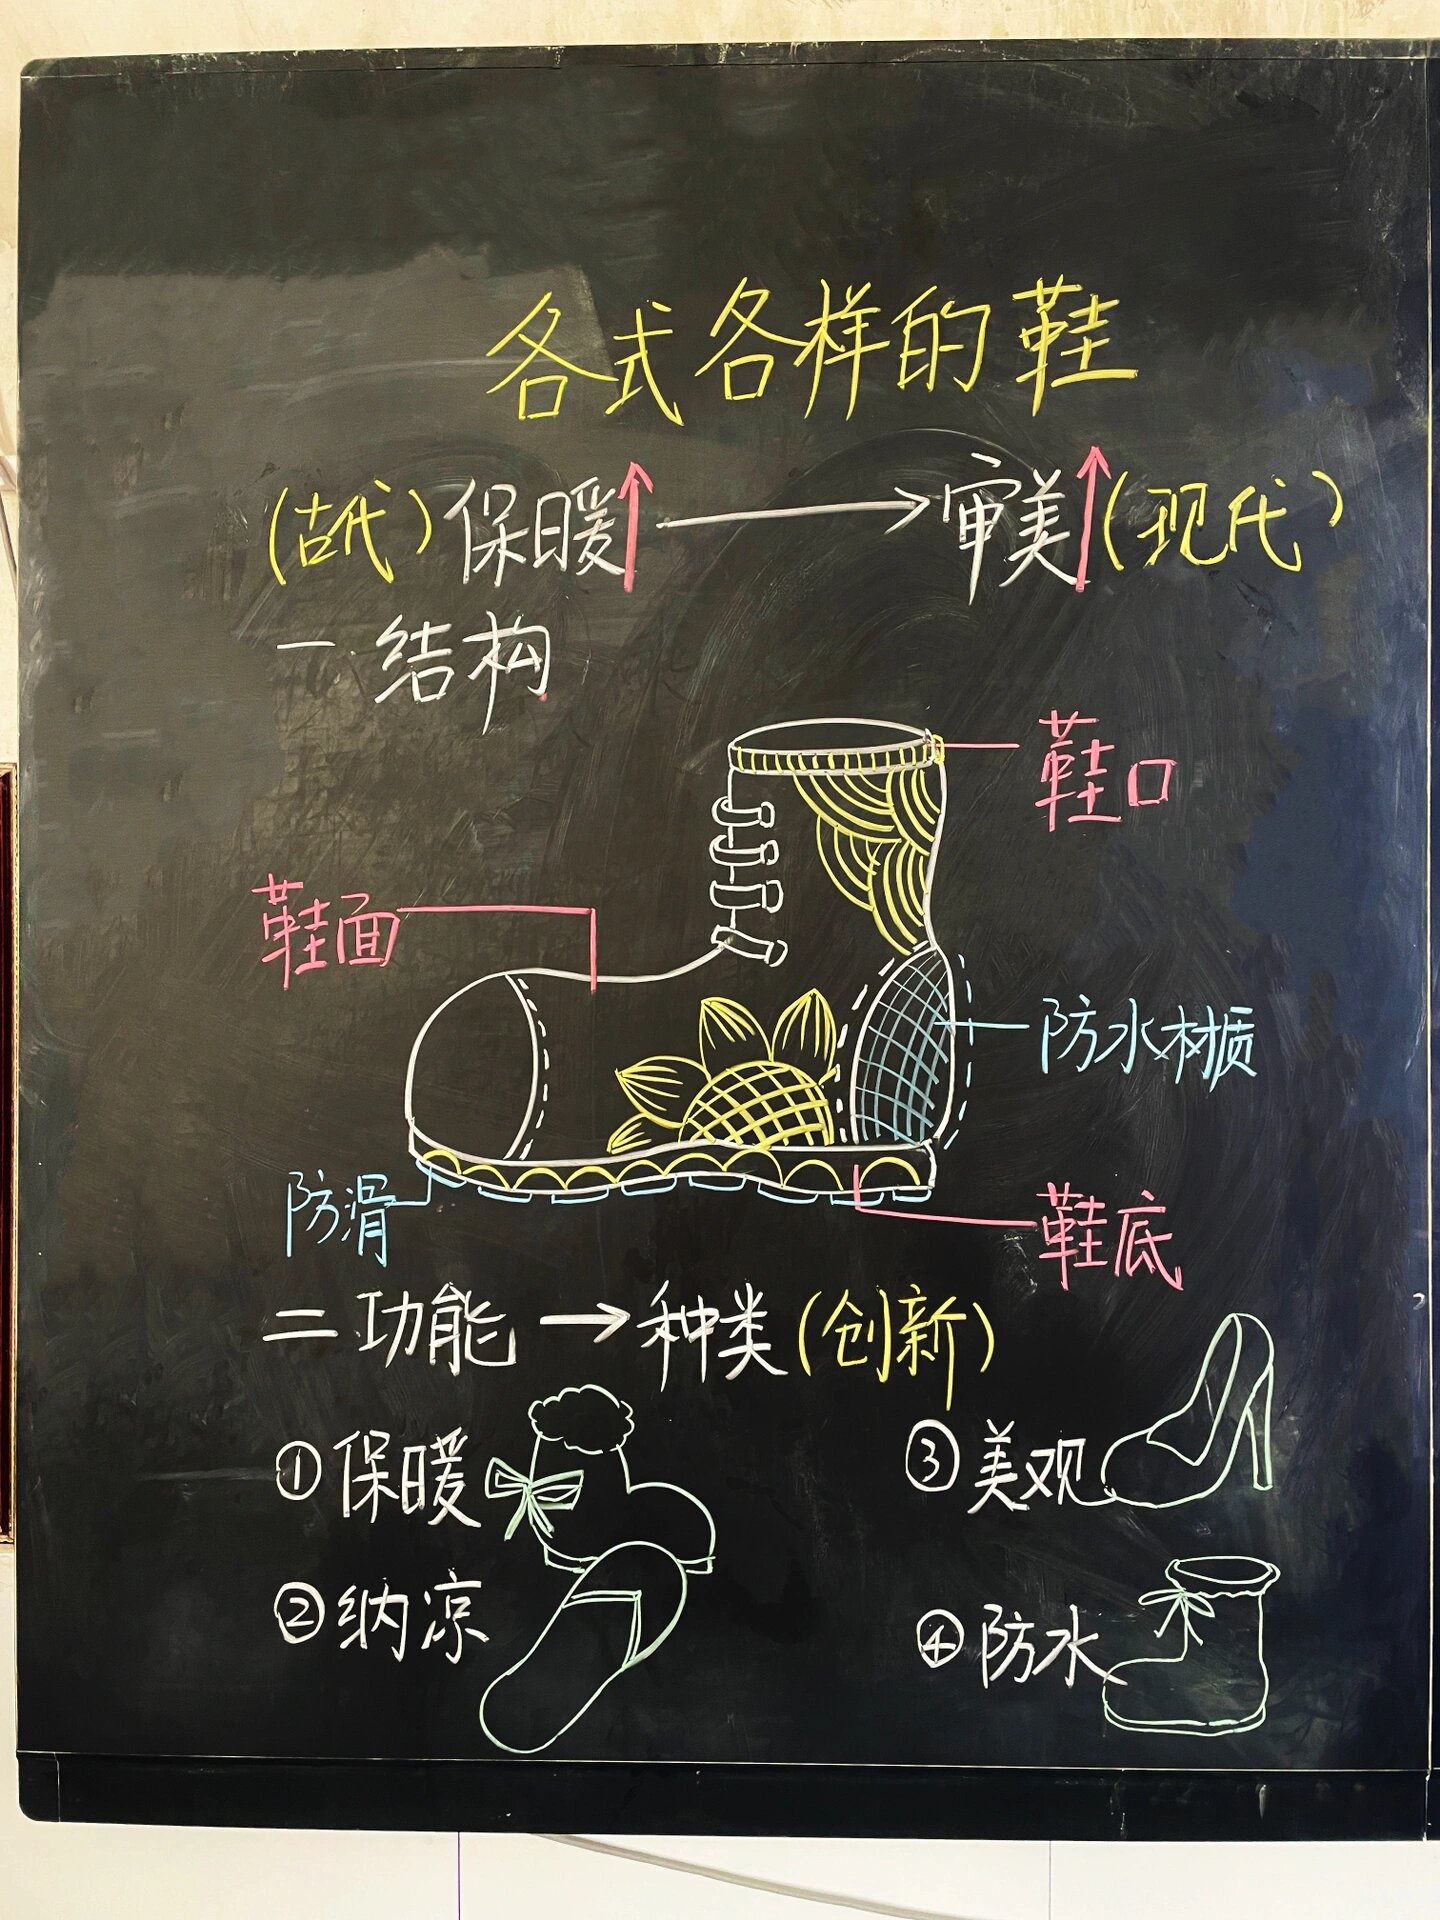 各式各样的鞋
(古代)保暖↑→审美↑(现代)
一.结构
鞋口
鞋面
防水材质
防滑
鞋底
二 功能→种类(创新)
①保暖
③美观
②纳凉
④防水